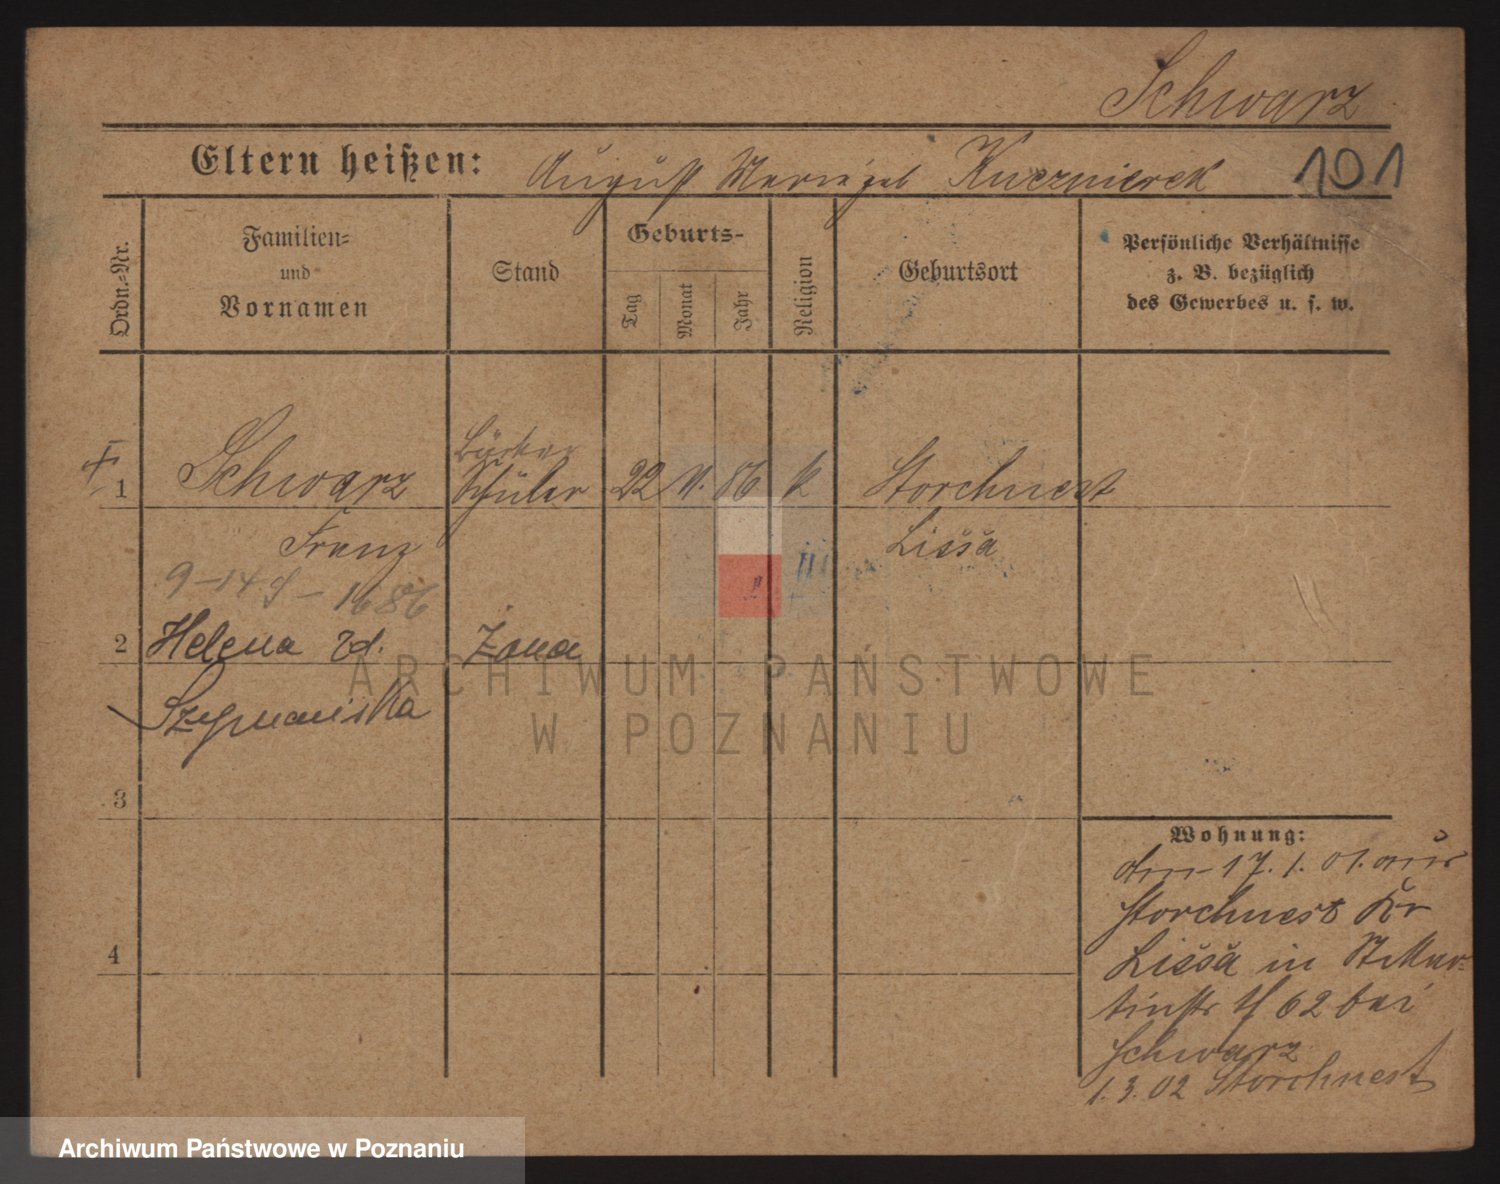 Schwarz
Eltern heißen: August Kucznierek 101
Ordn.-Nr.
Familien-
und
Vornamen
Stand
Geburts-
Tag
Monat
Jahr
Religion
Geburtsort
Persönliche Verhältnisse
z. B. bezüglich
des Gewerbes u. s. w.
Bäcker
1 Schwarz Schüler 22 11. 86 k Storchnest
Franz Lissa
9-14
2 Helena zd. Żona
Szymańska
ARCHIWUM PAŃSTWOWE
W POZNANIU
3
4
Wohnung:
den 17. 1. 01. aus
Storchnest Kr
Lissa in St Mar-
tinstr 62 bei
Schwarz
1. 3. 02 Storchnest
Archiwum Państwowe w Poznaniu